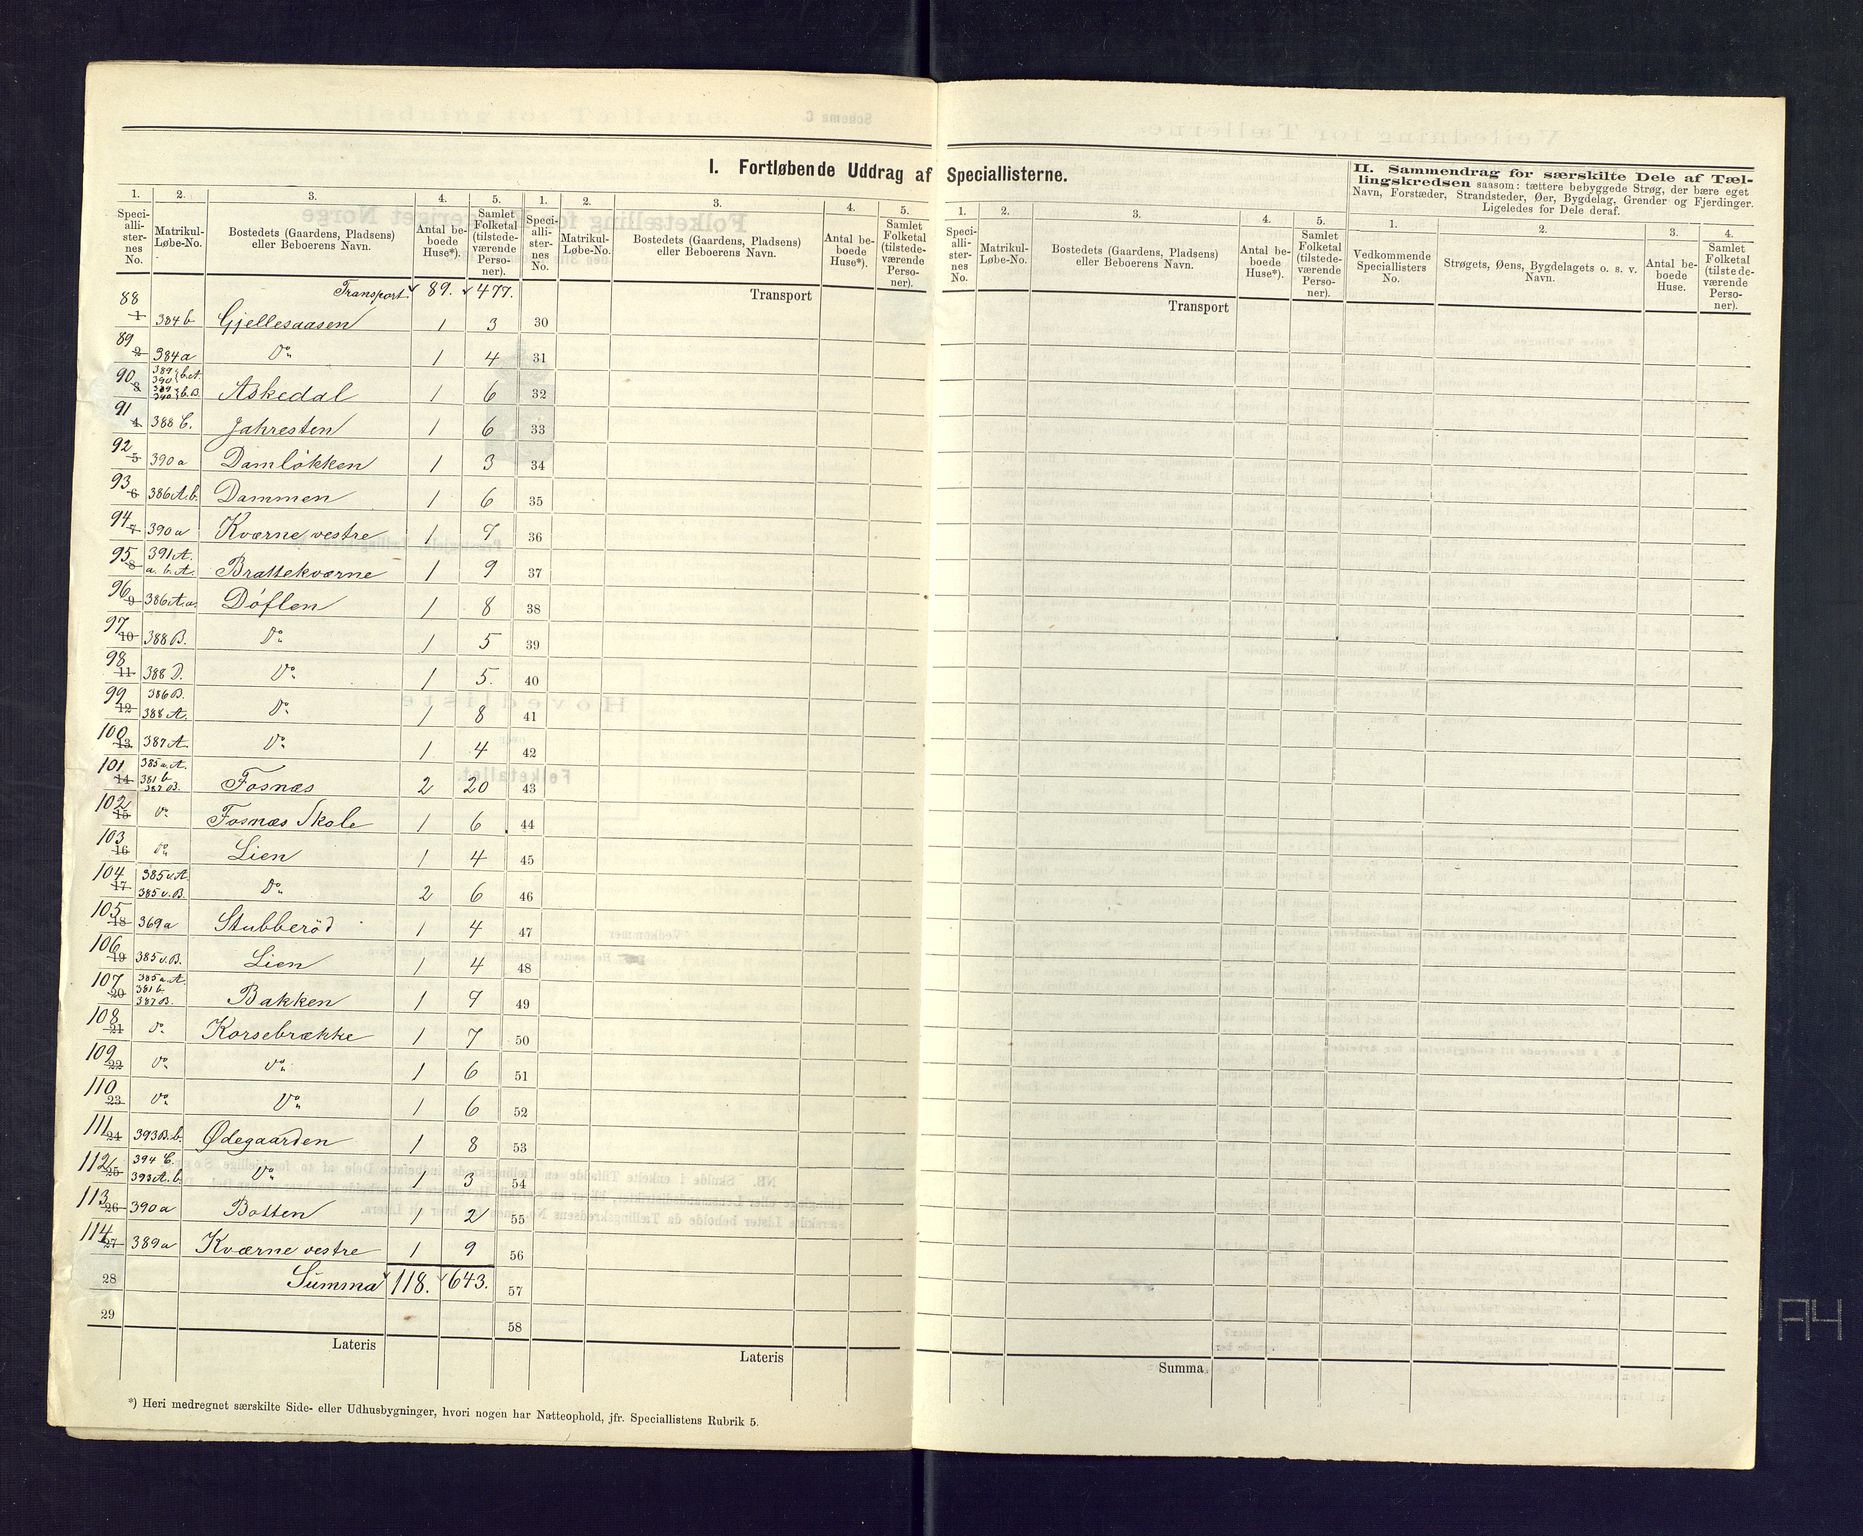 I. Fortløbende Uddrag af Speciallisterne.
II. Sammendrag for særskilte Dele af Tæl-
lingskredsen saasom: tættere bebyggede Strøg, der bære eget
Navn, Forstæder, Strandsteder, Øer, Bygdelag, Grender og Fjerdinger.
Ligeledes for Dele deraf.
1. 2. 3. 4. 5. 1. 2. 3. 4. 5. 1. 2. 3. 4. 5. 1. 2. 3. 4.
Speci-alli-ster-nes No. Matrikul-Løbe-No. Bostedets (Gaardens, Pladsens) eller Beboerens Navn. Antal be-boede Huse*). Samlet Folketal (tilstede-værende Perso-ner).
Speci-alli-ster-nes No. Matrikul-Løbe-No. Bostedets (Gaardens, Pladsens) eller Beboerens Navn. Antal be-boede Huse*). Samlet Folketal (tilstede-værende Perso-ner).
Speci-alli-ster-nes No. Matrikul-Løbe-No. Bostedets (Gaardens, Pladsens) eller Beboerens Navn. Antal be-boede Huse*). Samlet Folketal (tilstede-værende Perso-ner).
Vedkommende Speciallisters No. Strøgets, Øens, Bygdelagets o. s. v. Navn. Antal be-boede Huse. Samlet Folketal (tilstede-værende Perso-ner).
Transport 89. 477. Transport Transport
88 1 384 b Gjellesaasen 1 3 30
89 2 384 a Do 1 4 31
90 3 389 390 b.A. b.B. Askedal 1 6 32
91 4 388 C. Jahresten 1 6 33
92 5 390 a Damløkken 1 3 34
93 6 386 A.b. Dammen 1 6 35
94 7 390 a Kværne vestre 1 7 36
95 8 391 A. a. b. A. Brattekværne 1 9 37
96 9 386 A.a. Døflen 1 8 38
97 10 388 B. Do 1 5 39
98 11 388 D. Do 1 5. 40
99 12 386 B. 388 A. Do 1 8 41
100 13 387 A. Do 1 4 42
101 14 385 a. A. 381 b 387 B. Fosnæs 2 20 43
102 15 Do Fosnæs Skole 1 6 44
103 16 Do Lien 1 4 45
104 17 385 v. A. 385 v. B. Do 2 6 46
105 18 369 a Stubberød 1 4 47
106 19 385 v. B. Lien 1 4 48
107 20 385 a. A. 381 b. 387 B. Bakken 1 7 49
108 21 Do Korsebrække 1 7 50
109 22 Do Do 1 6 51
110 23 Do Do 1 6 52
111 24 393 B. b. Ødegaarden 1 8 53
112 25 394 C. 393 A. b. Do 1 3 54
113 26 390 a Botten 1 2 55
114 27 389 a Kværne vestre 1 9 56
28 Summa 118. 643. 57
29 58
Lateris Lateris Summa
*) Heri medregnet særskilte Side- eller Udhusbygninger, hvori nogen har Natteophold, jfr. Speciallistens Rubrik 5.